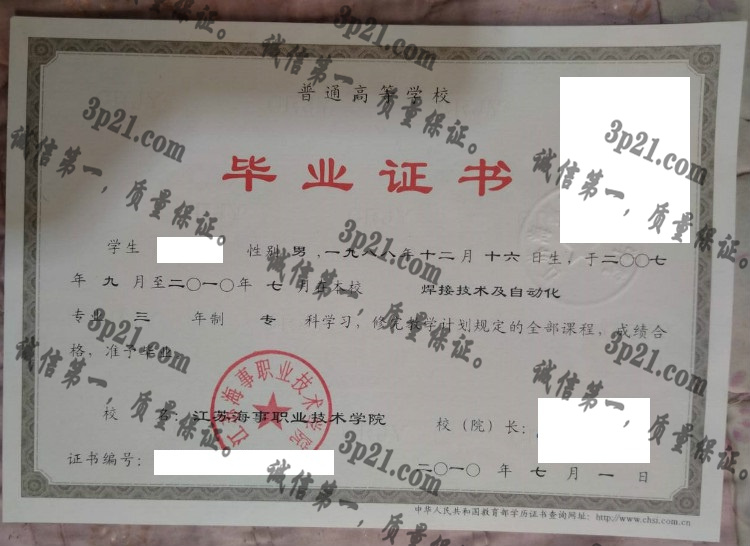 普通高等学校
毕业证书
学生 性别 男 ,一九八八年 十二月 十六 日生, 于二〇〇七
年 九 月至二〇一〇年 七 月在本校 焊接技术及自动化
专业 三 年制 专 科学习, 修完教学计划规定的全部课程, 成绩合
格, 准予毕业。
校 名: 江苏海事职业技术学院 校(院)长:
证书编号: 二〇一〇 年 七 月 一 日
中华人民共和国教育部学历证书查询网址: http://www.chsi.com.cn
江苏海事职业技术学院
3p21.com
诚信第一,质量保证。
3p21.com
诚信第一,质量保证。
3p21.com
诚信第一,质量保证。
3p21.com
诚信第一,质量保证。
3p21.com
诚信第一,质量保证。
3p21.com
诚信第一,质量保证。
3p21.com
诚信第一,质量保证。
3p21.com
诚信第一,质量保证。